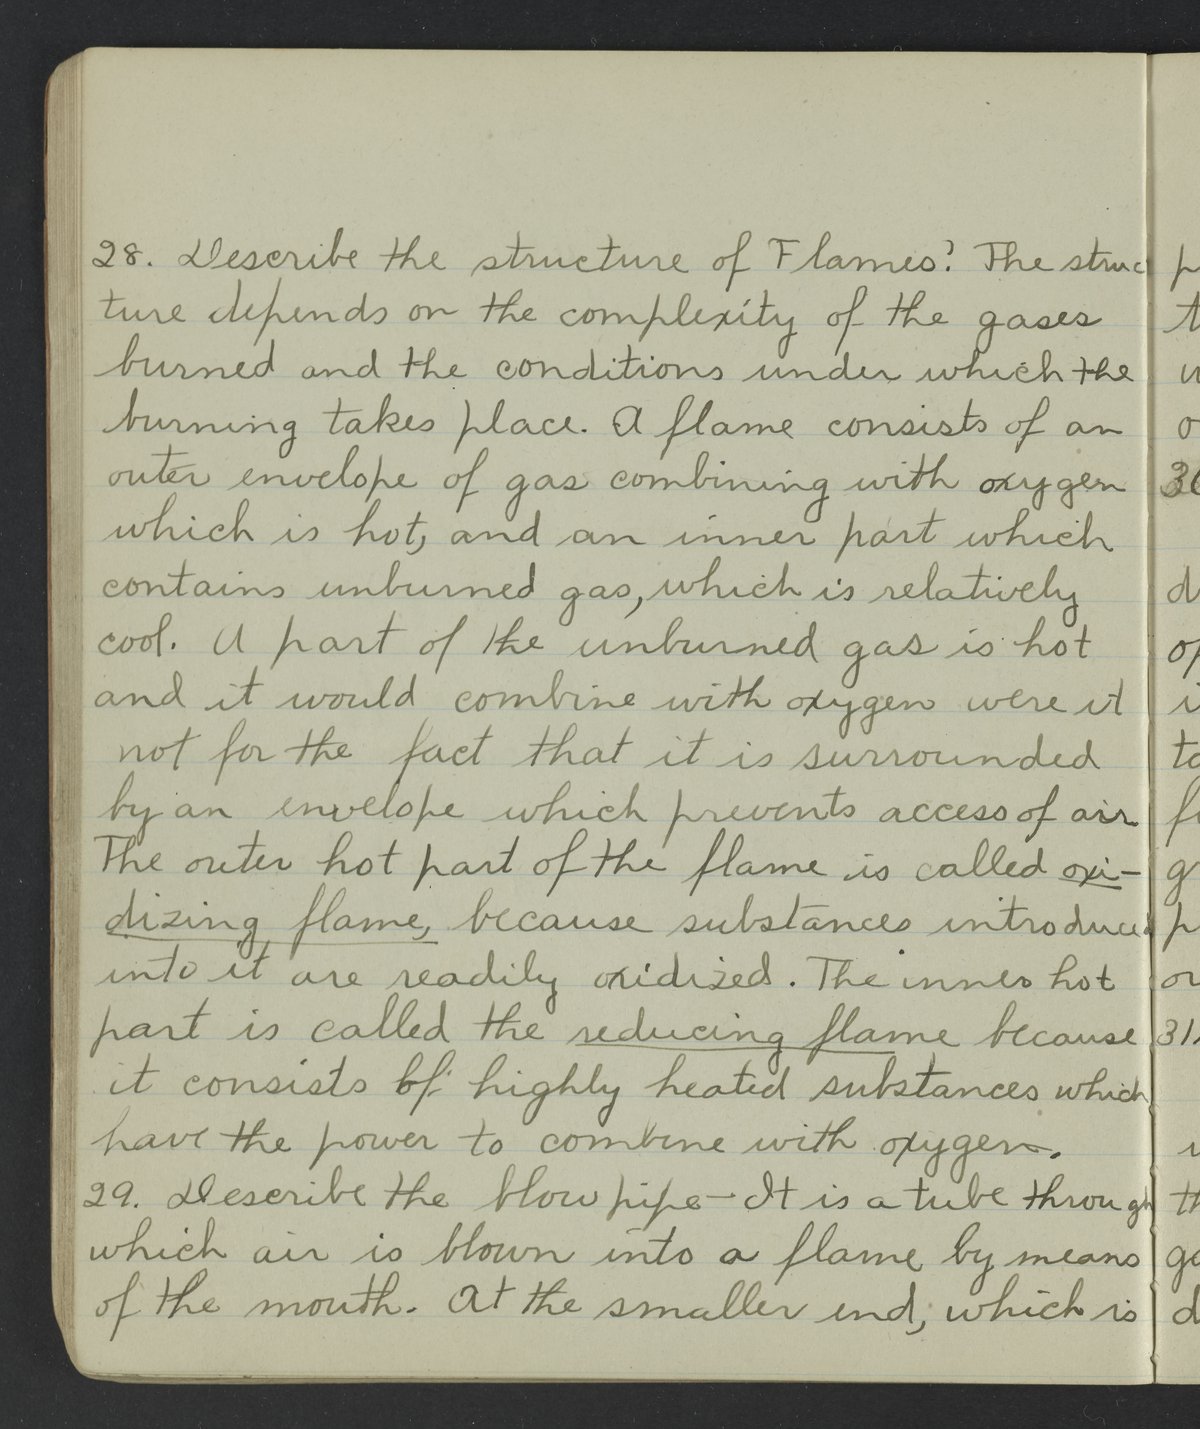 28. Describe the structure of Flames? The struc
ture depends on the complexity of the gases
burned and the conditions under which the
burning takes place. A flame consists of an
outer envelope of gas combining with oxygen
which is hot, and an inner part which
contains unburned gas, which is relatively
cool. A part of the unburned gas is hot
and it would combine with oxygen were it
not for the fact that it is surrounded
by an envelope which prevents access of air
The outer hot part of the flame is called oxi-
dizing flame, because substances introduced
into it are readily oxidized. The inner hot
part is called the reducing flame because
it consists of highly heated substances which
have the power to combine with oxygen.
29. Describe the blow pipe - It is a tube through
which air is blown into a flame by means
of the mouth. At the smaller end, which is
30
31.